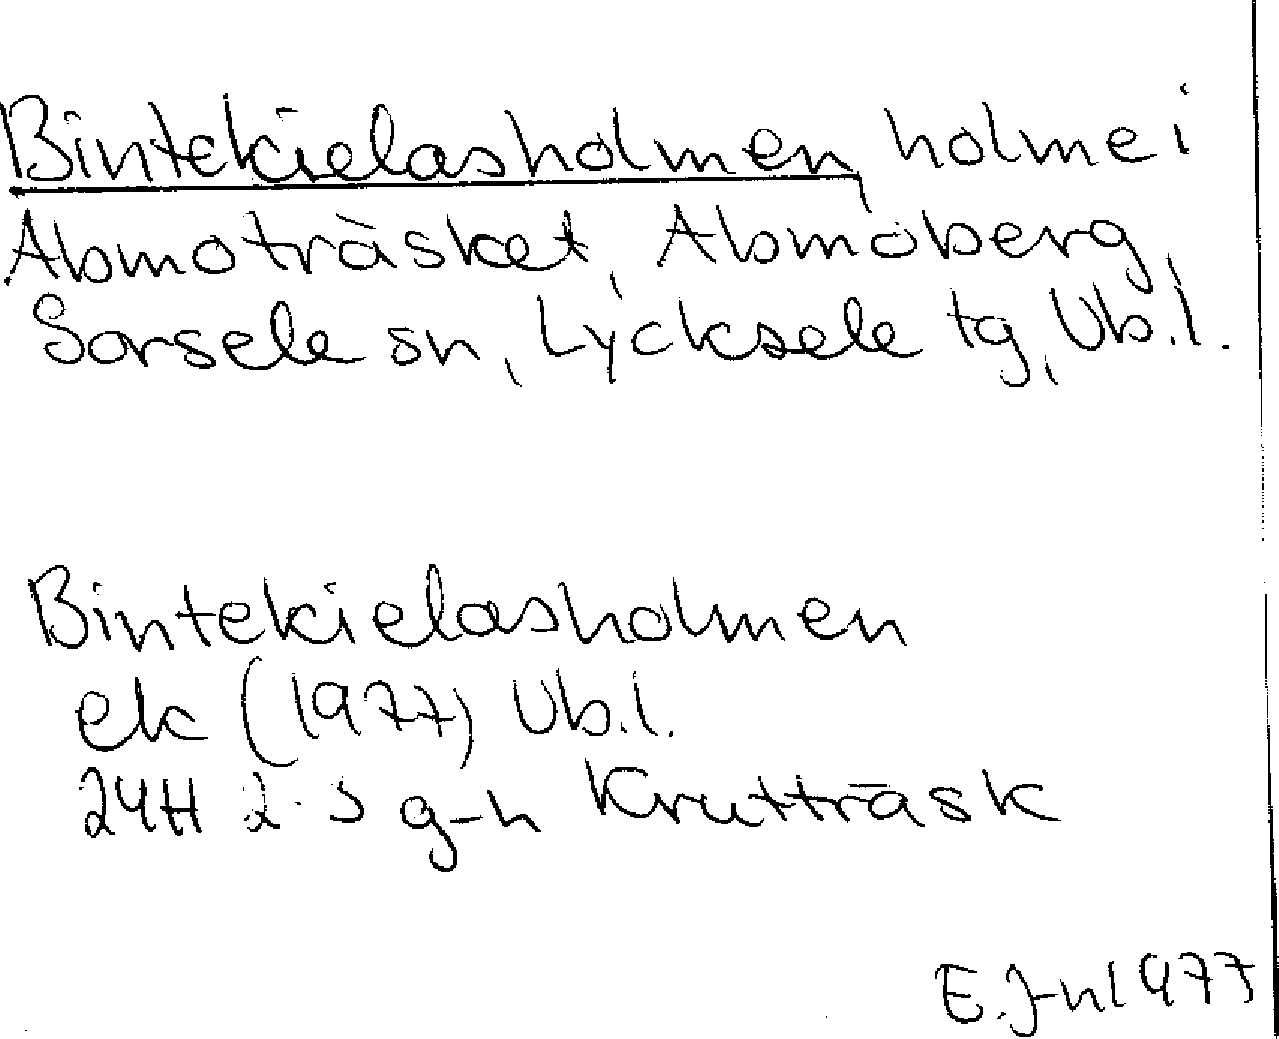 Bintekielasholmen, holme i
Abmoträsket, Abmoberg,
Sorsele sn, Lycksele tg, Vb.l.
Bintekielasholmen
ek (1977) Vb.l.
24H 2-3 g-h Krutträsk
E.J-n 1977